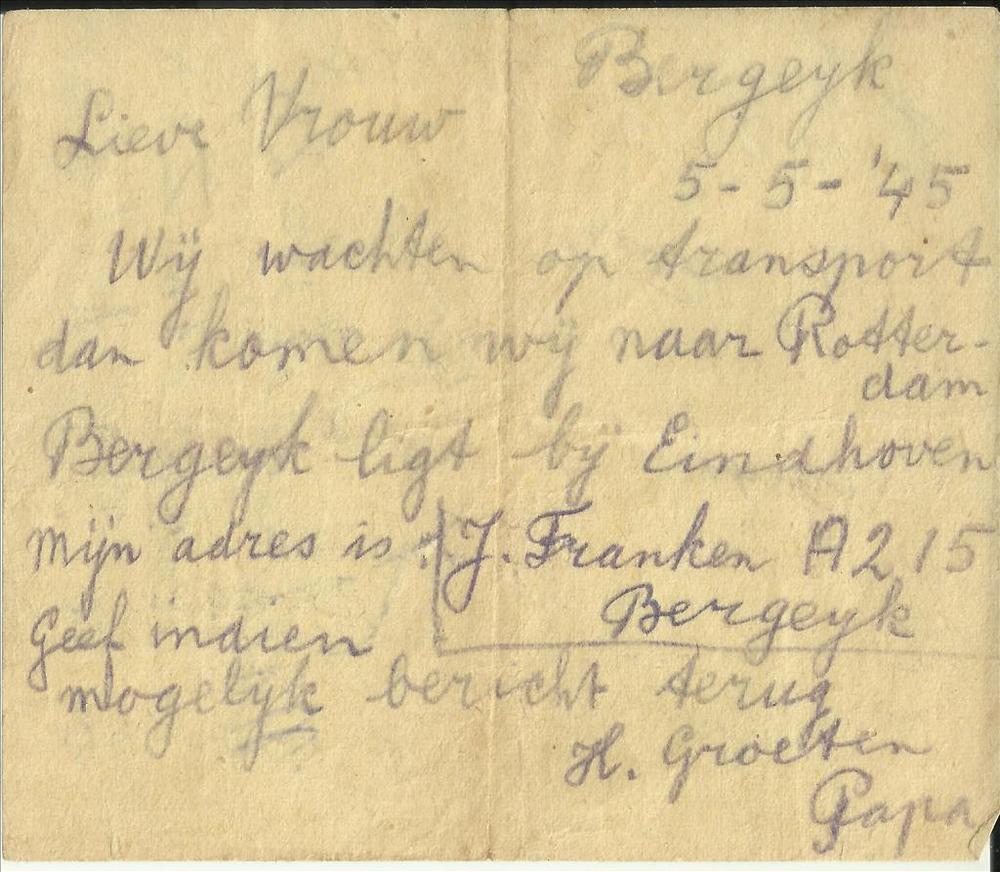 Bergeyk
Lieve Vrouw
5-5-'45
Wij wachten op transport
dan komen wij naar Rotter-
dam
Bergeyk ligt bij Eindhoven
Mijn adres is : J. Franken A215
Bergeyk
Geef indien
mogelijk bericht terug
H. Groeten
Papa